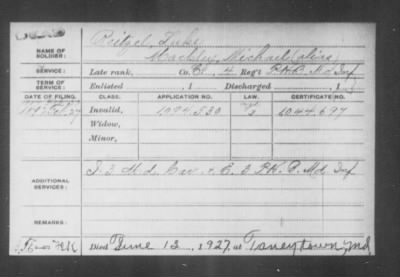 Reitzel, Luke
NAME OF SOLDIER: Mackley, Michael (alias)
SERVICE: Late rank, Co. B, 4 Reg't P.H.B. Md Inf
TERM OF SERVICE: Enlisted , 1 Discharged , 1
DATE OF FILING. CLASS. APPLICATION NO. LAW. CERTIFICATE NO.
Invalid, 1094.530 1044.697
Widow,
Minor,
ADDITIONAL SERVICES: Md. Cav. & C. 3 P.H.B. Md. Inf
REMARKS:
Died June 12, 1927, at Taneytown, Md